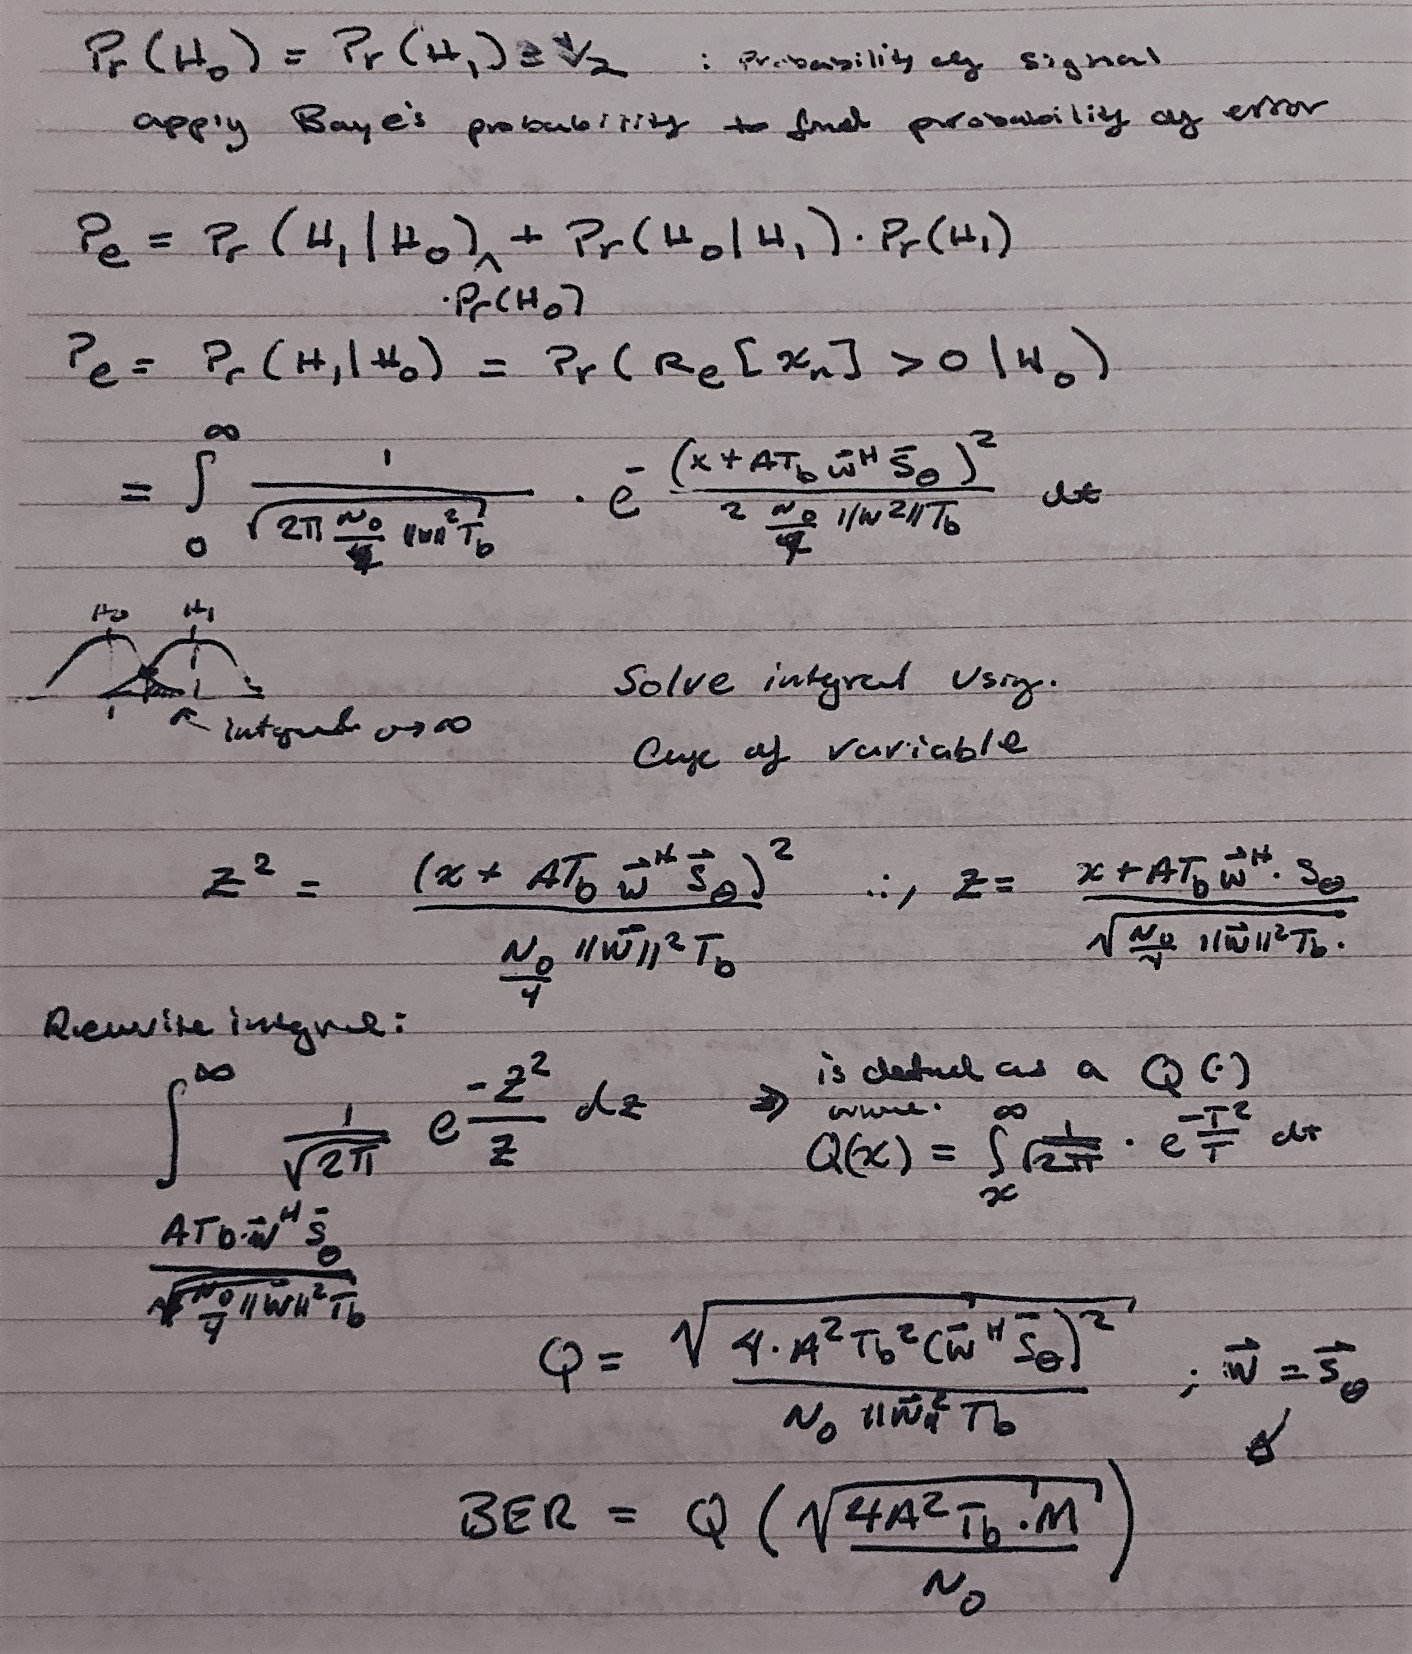 Pr(H₀) = Pr(H₁) = 1/2 : Probability of signal
apply Baye's probability to find probability of error
Pe = Pr(H₁|H₀) ^ + Pr(H₀|H₁)·Pr(H₁)
·Pr(H₀)
Pe = Pr(H₁|H₀) = Pr(Re[xₙ] > 0 | H₀)
= ∫₀^∞ 1/√(2π N₀/4 ||w||² T_b) · e^-((x + AT_b w̄ᴴ s̄_θ)² / (2 N₀/4 ||w²|| T_b)) dt
H₀ H₁
integral 0→∞
Solve integral using.
of variable
z² = (x + AT_b w⃗ᴴ s⃗_θ)² / (N₀/4 ||w⃗||² T_b) ∴, z = (x + AT_b w⃗ᴴ · s_θ) / √(N₀/4 ||w⃗||² T_b).
Rewrite integral:
∫^∞ 1/√(2π) e^(-z²/z) dz ⇒ is defined as a Q(·)
where.
Q(x) = ∫ₓ^∞ 1/√(2π) · e^(-T²/T) dt
AT_b·w⃗ᴴ s̄_θ / √(N₀/4 ||w⃗||² T_b)
Q = √(4·A² T_b² (w⃗ᴴ s̄_θ)² / (N₀ ||w⃗||² T_b)) ; w⃗ = s⃗_θ
BER = Q(√(4A² T_b · M / N₀))